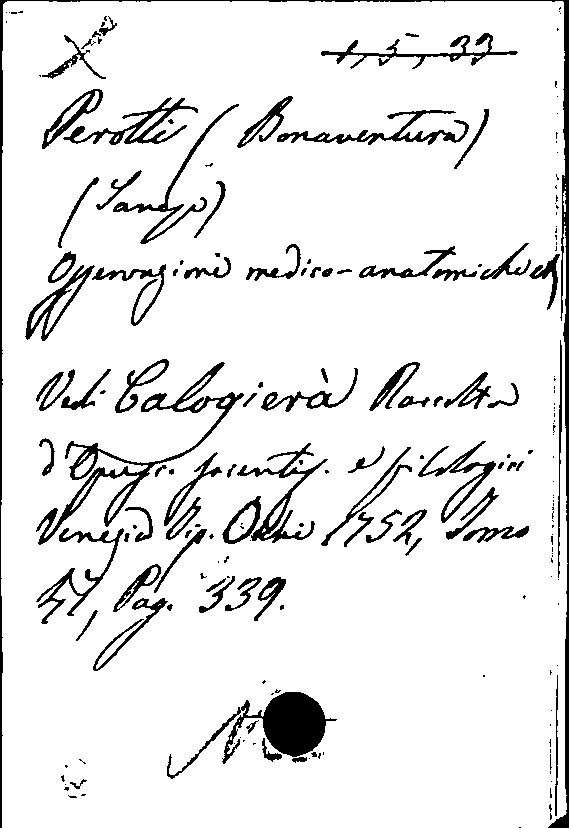 1, 5, 33
Perotti (Bonaventura)
Osservazioni medico-anatomiche
Vedi Calogierà Raccolta
d'Opusc. scientif. e filologici
Venezia Tip. Occhi 1752, Tomo
47, Pag. 339.